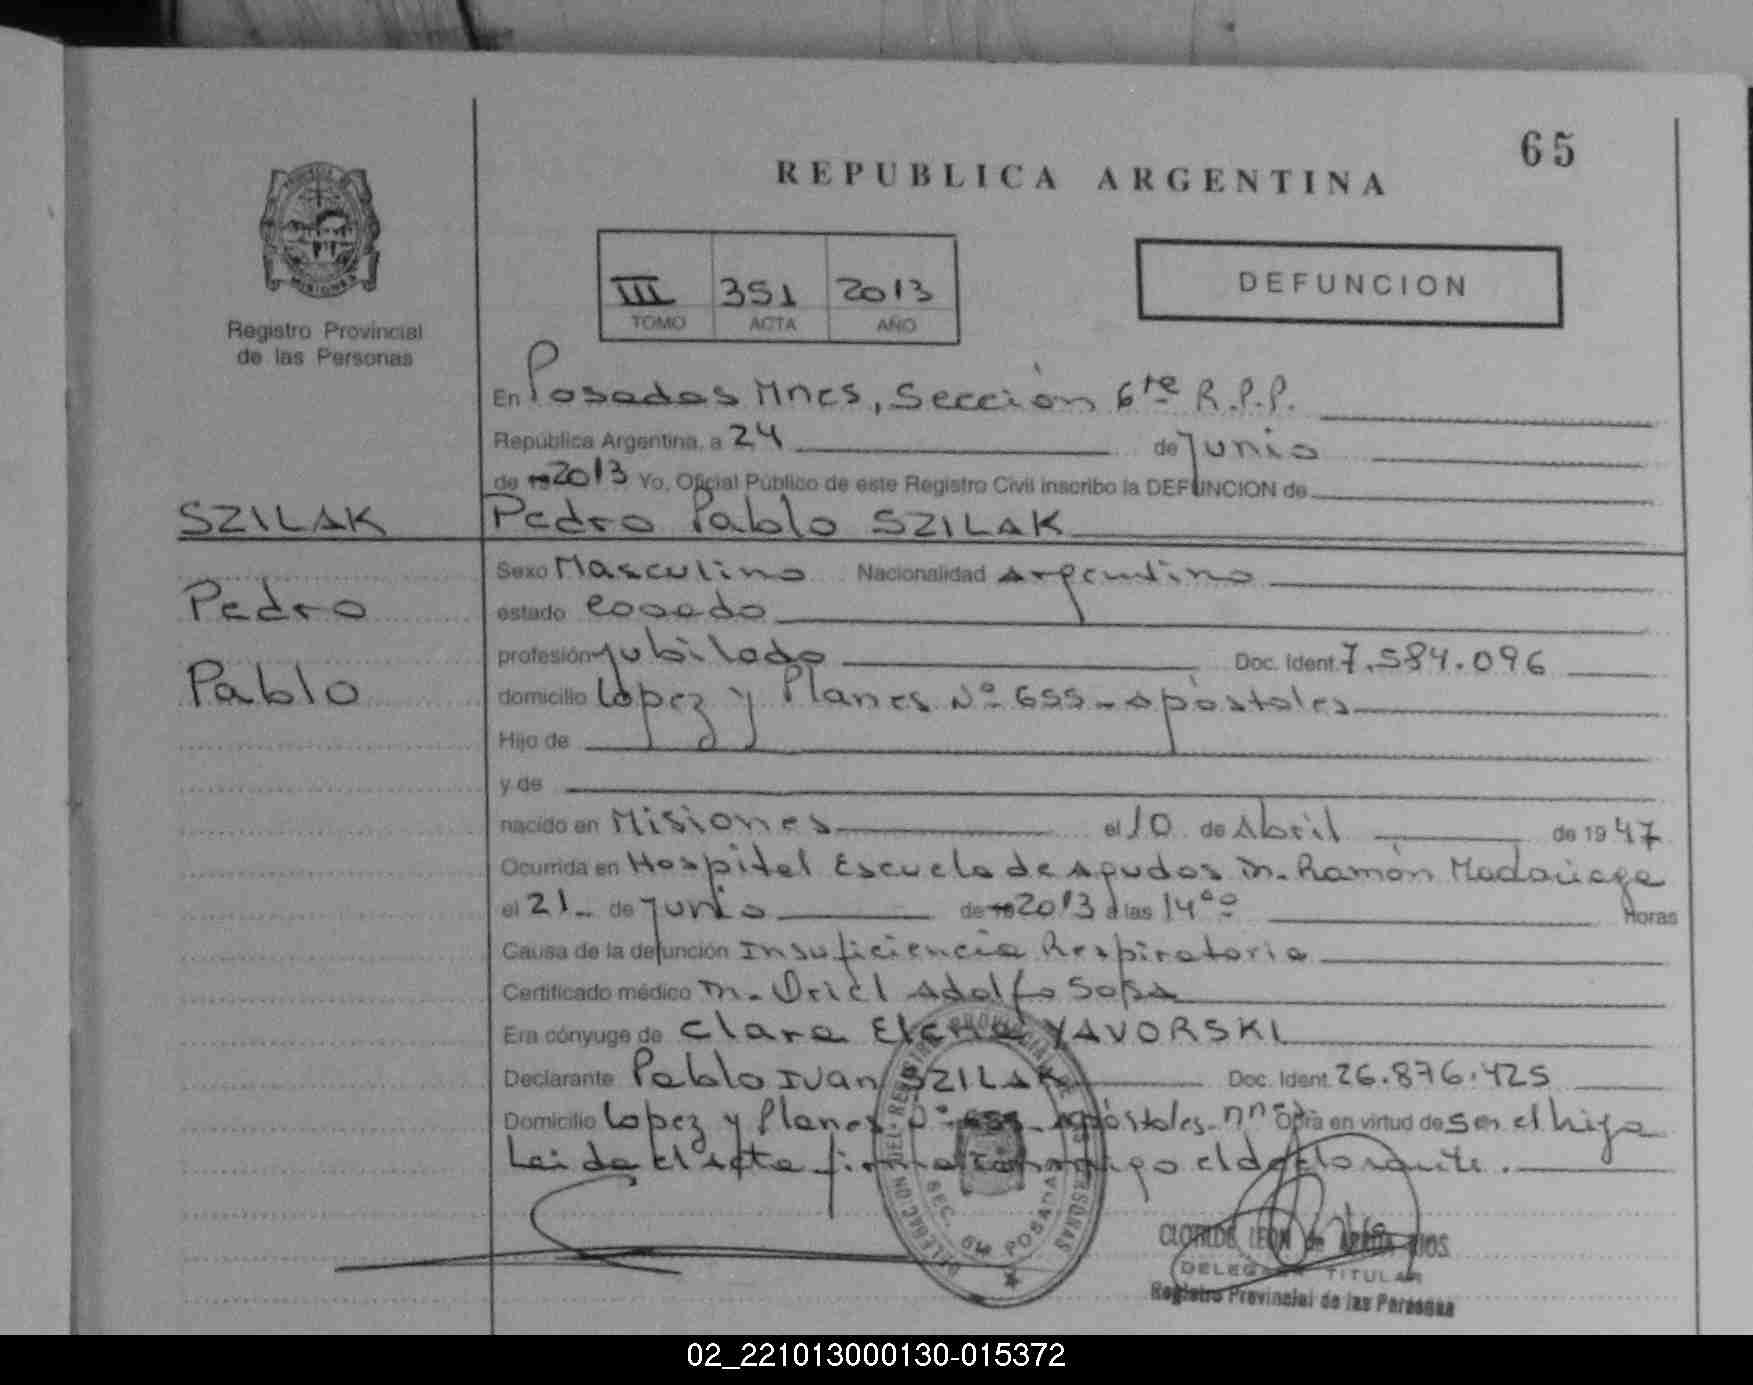 65
REPUBLICA ARGENTINA
III 351 2013
TOMO ACTA AÑO
DEFUNCION
MISIONES
Registro Provincial
de las Personas
En Posadas Mnes, Sección 6ta R.P.P.
República Argentina, a 24 de Junio
de 19 2013 Yo, Oficial Público de este Registro Civil inscribo la DEFUNCION de
SZILAK Pedro Pablo SZILAK
Sexo Masculino Nacionalidad Argentina
Pedro estado casado
profesión jubilado Doc. Ident. 7.584.096
Pablo domicilio Lopez y Planes Nº 655 - Apóstoles
Hijo de
y de
nacido en Misiones el 10 de Abril de 19 47
Ocurrida en Hospital Escuela de Agudos Dr. Ramón Madariaga
el 21 de Junio de 19 2013 a las 14 00 Horas
Causa de la defunción Insuficiencia Respiratoria
Certificado médico Dr. Oriel Adolfo Sosa
Era cónyuge de Clara Elena YAVORSKI
Declarante Pablo Ivan SZILAK Doc. Ident. 26.876.425
Domicilio Lopez y Planes Nº 655 - Apóstoles - Mnes Obra en virtud de Ser el hijo
Leida el acta firma conmigo el declarante.
DELEGACION DEL REGISTRO PROVINCIAL DE LAS PERSONAS
SEC. 6ta POSADAS
CLOTILDE LEON de
DELEGADA TITULAR
Registro Provincial de las Personas
02_221013000130-015372